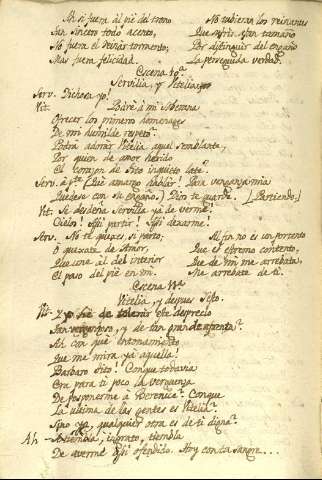 Ah si fuera al pie del trono
Tan sincero todo acento,
No fuera el reinar tormento;
Mas fuera felicidad.
No tubieran los reinantes
Que sufrir tan tamaño
Por distinguir del engaño
La perseguida verdad.
Escena 10ª
Servilia, y Vitelia
Serv. Dichosa yo!
Vit. Podré á mi Soberana
Ofrecer los primeros homenages
De mi humilde respeto?
Podré adorar Vitelia aquel semblante,
Por quien de amor herido
El corazon de Tito inquieto late?
Serv. á pte. (Qué amargo hablar! Para venganza mia
Quedese con su engaño.) Dios te guarde. (Partiendo.)
Vit. Se desdeña Servilia ya de verme!
Cielos! Asi partir! Asi dexarme!
Serv. No te quexes si parto;
O quexate de Amor,
Que une al del interior
El paso del pie en mi.
Al fin no es un portento
Que el extremo contento,
Que de mi me arrebata,
Me arrebate de ti.
Escena 11ª
Vitelia, y despues Sesto.
Vit. Y he de tolerar este desprecio
Tan vergonzoso, y de tan grande afrenta?
Ah con qué entonamiento
Que me mira ya aquella!
Barbaro Tito! Conque todavia
Era para ti poco la verguenza
De posponerme á Berenice? Conque
La ultima de las gentes es Vitelia?
Sino yo, qualquier otra es de ti digna?
Ah tiembla, ingrato, tiembla
De averme asi ofendido. Hoy con tu sangre...